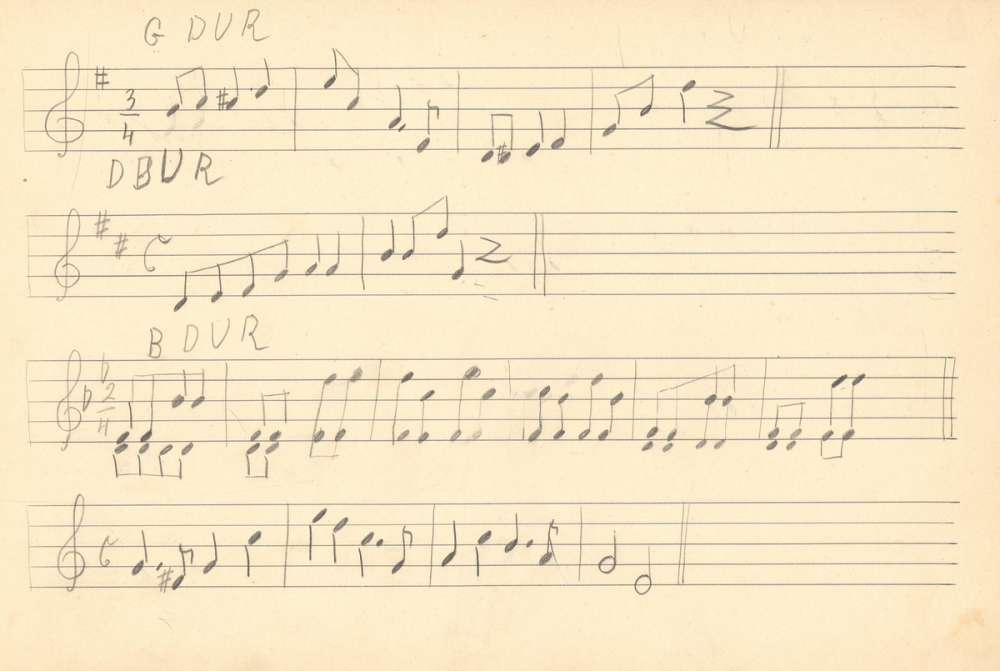 G DUR
3
4
D DUR
C
B DUR
2
4
C